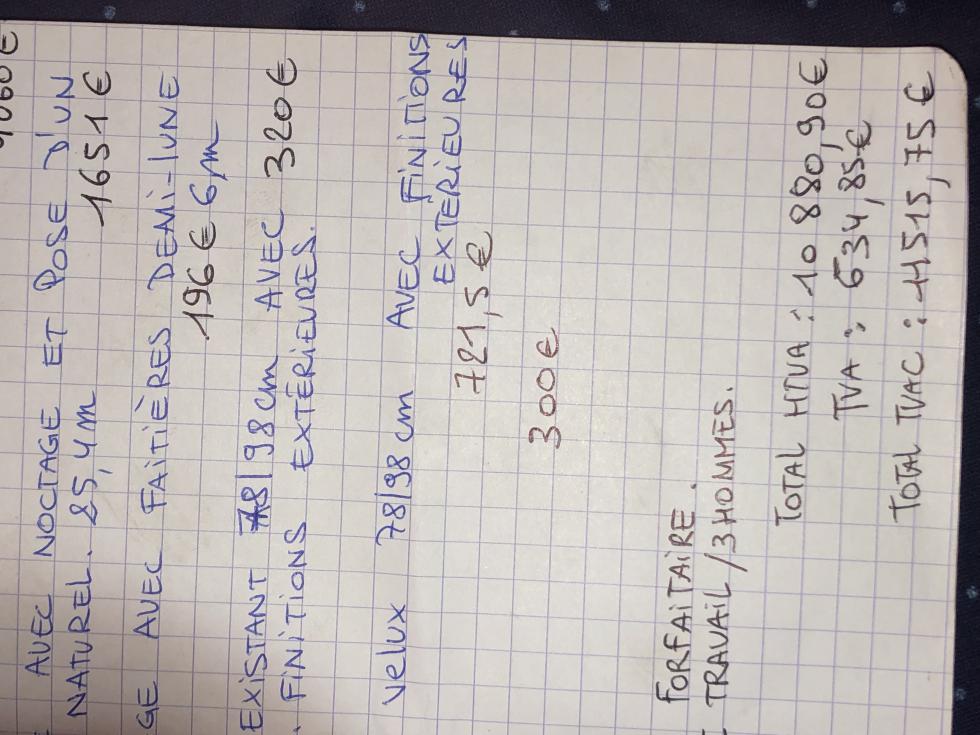 AVEC NOCTAGE ET POSE D'UN
NATUREL. 25,4m 1651€
GE AVEC FAITIÈRES DEMI-LUNE
196€ 6pm
EXISTANT 78/98cm AVEC 320€
. FINITIONS EXTÉRIEURES.
Velux 78/98cm AVEC FINITIONS
EXTERIEURES
721,5€
300€
FORFAITAIRE.
TRAVAIL/3HOMMES.
TOTAL HTVA : 10 880,90€
TVA : 634,85€
TOTAL TVAC : 11515,75€